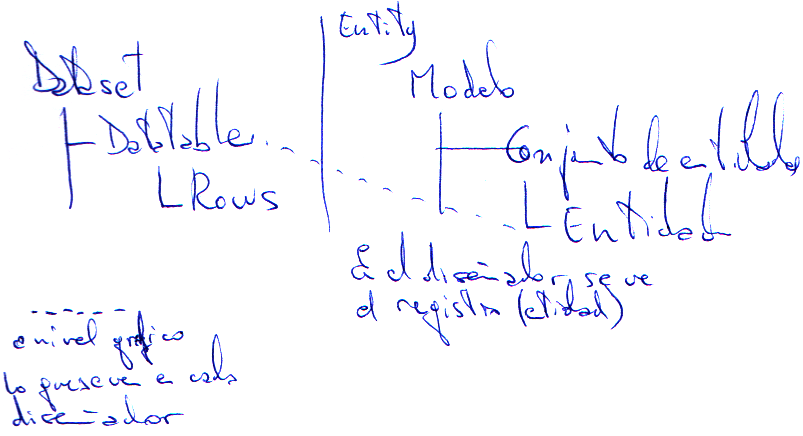 Dataset
Datatable
Rows
Entity
Modelo
Conjunto de entidades
Entidad
En el diseñador, se ve
el registro (entidad)
a nivel gráfico
lo que se ve en cada
diseñador